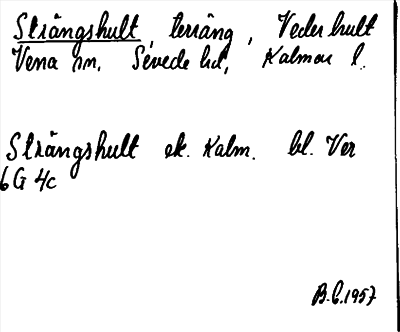 Strängshult, terräng, Vederhult
Vena sn, Sevede hd, Kalmar l.
Strängshult ek. Kalm. bl. Ver
6G 4c
B.C. 1957